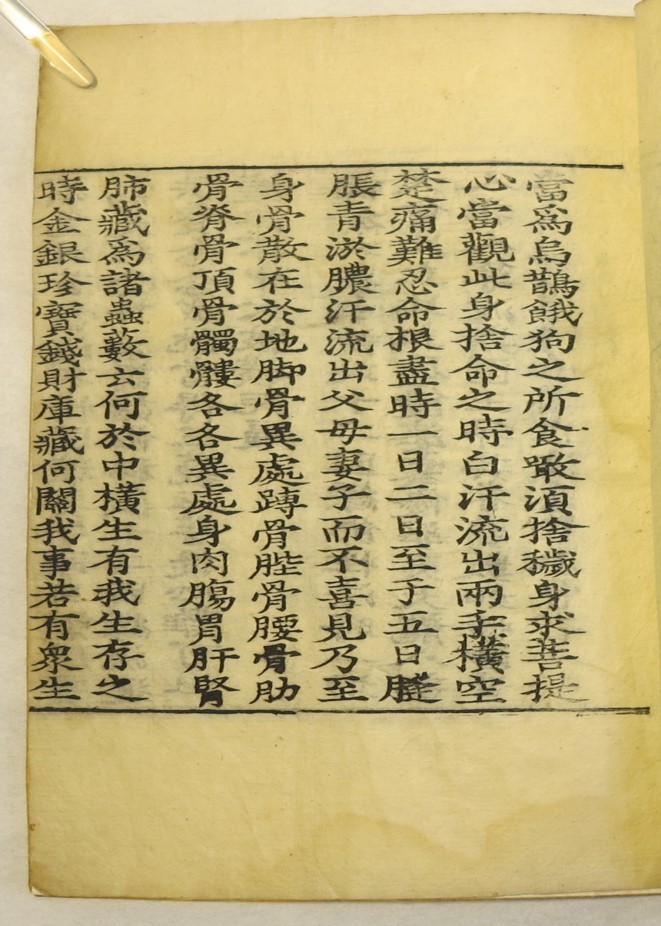 當為烏鵲餓狗之所食噉湏捨穢身求菩提
心當觀此身捨命之時白汗流出兩手橫空
楚痛難忍命根盡時一日二日至于五日膖
脹青淤膿汗流出父母妻子而不喜見乃至
身骨散在於地脚骨異處骨䏶骨腰骨肋
骨脊骨頂骨髑髏各各異處身肉膓胃肝腎
肺藏為諸蟲藪云何於中橫生有我生存之
時金銀珍寶錢財庫藏何關我事若有衆生